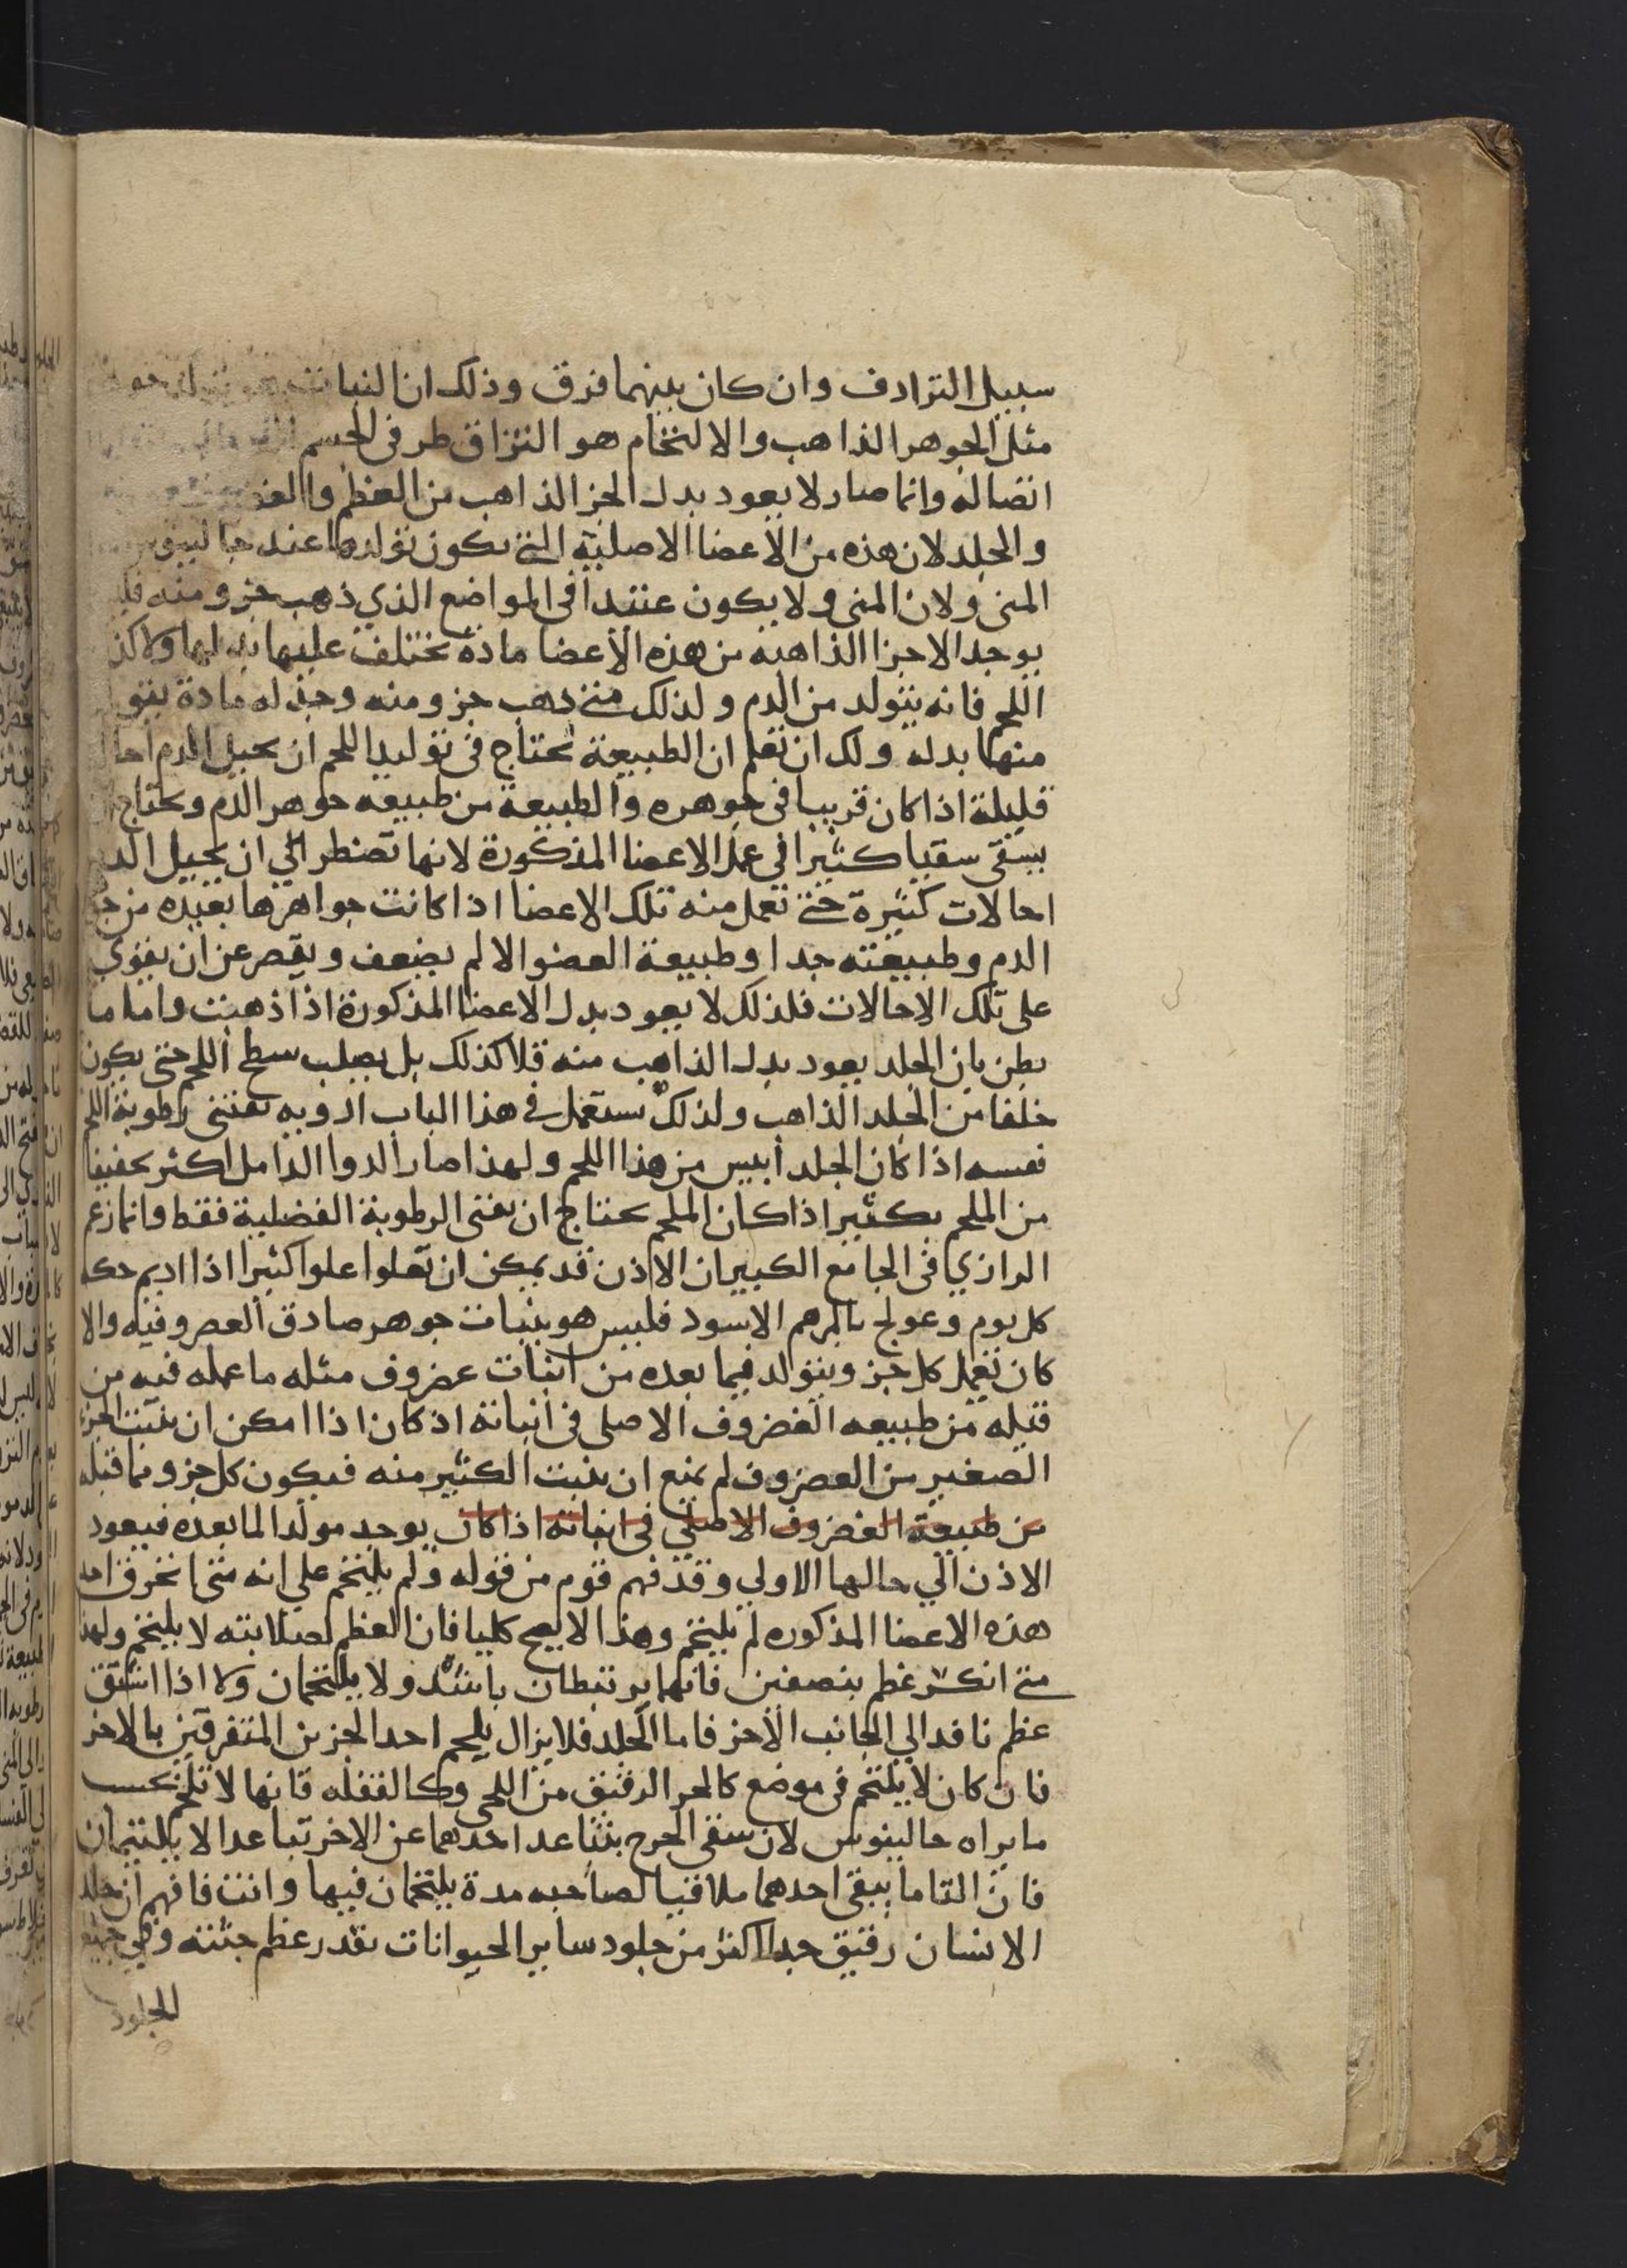 سبيل الترادف وان كان بينهما فرق وذلك ان النبات
مثل الجوهر الذاهب والالتحام هو التزاق طرفى الجسم
اتصاله وانما صار لا يعود بدل الجز الذاهب من العظم والغضروف
والجلد لان هذه من الاعضا الاصلية التى يكون تولدها عند جالينوس من
المنى ولان المنى ولا يكون عنتدا فى المواضع الذي ذهب جزو منه فلم
يوجد الاجزا الذاهبه من هذه الاعضا مادة تختلف عليها بدلها ولا كذا
اللحم فانه يتولد من الدم ولذلك متى ذهب جزو منه وجد له مادة يتولد
منها بدله ولك ان تعلم ان الطبيعة تحتاج فى توليد اللحم ان تحيل الدم احالة
قليلة اذا كان قريبا فى جوهره والطبيعة من طبيعه جوهر الدم وتحتاج
بسقى سقيا كثيرا فى عمل الاعضا المذكورة لانها تضطر الي ان تحيل الدم
احالات كثيرة حتى تعمل منه تلك الاعضا اذا كانت جواهرها بعيده من جوهر
الدم وطبيعته جدا وطبيعة العضو الالم يضعف ويقصر عن ان يقوي
على تلك الاحالات فلذلك لا يعود بدل الاعضا المذكورة اذا ذهبت واما ما
يظن بان الجلد يعود بدل الذاهب منه فلا كذلك بل يصلب سطح اللحم حتى يكون
خلفا من الجلد الذاهب ولذلك يستعمل فى هذا الباب ادويه تفنى رطوبة اللحم
نفسه اذا كان الجلد أيبس من هذا اللحم ولهذا صار الدوا الدامل اكثر تجفيفا
من الملحم بكثير اذا كان الملحم يحتاج ان يفنى الرطوبة الفضلية فقط وانما زعم
الرازي فى الجامع الكبير ان الاذن قد يمكن ان تعلوا علوا كثيرا اذا اديم حكه
كل يوم وعولج بالمرهم الاسود فليس هو بنبات جوهر صادق الغضروفيه والا
كان تعمل كل جز ويتولد فيما بعده من انبات غضروف مثله ما عمله فيه من
قبله من طبيعه الغضروف الاصلى فى انباته اذ كان اذا امكن ان ينبت الجزء
الصغير من الغضروف لم يمنع ان ينبت الكثير منه فيكون كل جزو مما قبله
من طبيعة الغضروف الاصلي فى انباته اذا كان يوجد مولدا لما بعده فيعود
الاذن الي حالها الاولي وقد فهم قوم من قوله ولم يلتحم علي انه متى انخرق احد
هذه الاعضا المذكوره لم يلتحم وهذا لا يصح كليا فان العظم لصلابته لا يلتحم ولهذا
متى انكسر عظم بنصفين فانهما يرتبطان باشد ولا يلتحمان وكا اذا انشق
عظم نافدا الي الجانب الاخر فاما الجلد فلا يزال يلحم احد الجزين المتفرقين بالاخر
فان كان لا يلتحم فى موضع كالجز الرقيق من اللحى وكالقفله فانها لا تلتحم بحسب
ما يراه جالينوس لان شقى الجرح يتباعد احدهما عن الاخر تباعدا لا يلتيمان
فان التاما يبقى احدهما ملاقيا لصاحبه مدة يلتحمان فيها وانت فافهم ان جلد
الانسان رقيق جدا اكثر من جلود ساير الحيوانات بقدر عظم جثته وهي جميع
الجلود